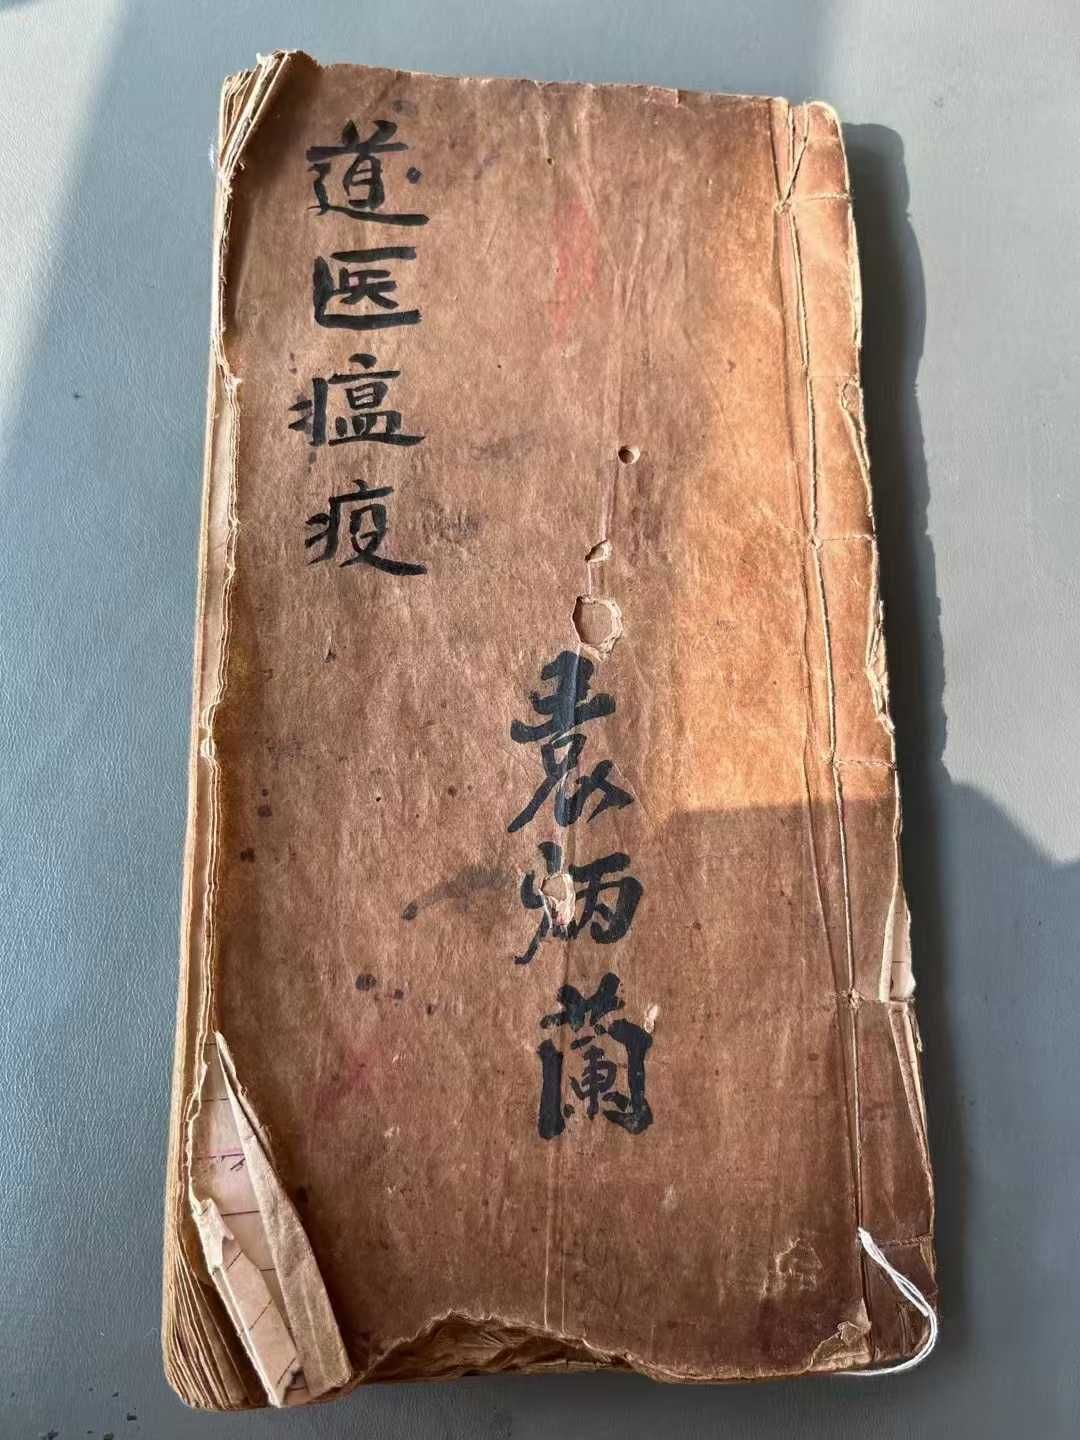 道医瘟疫
袁炳蘭